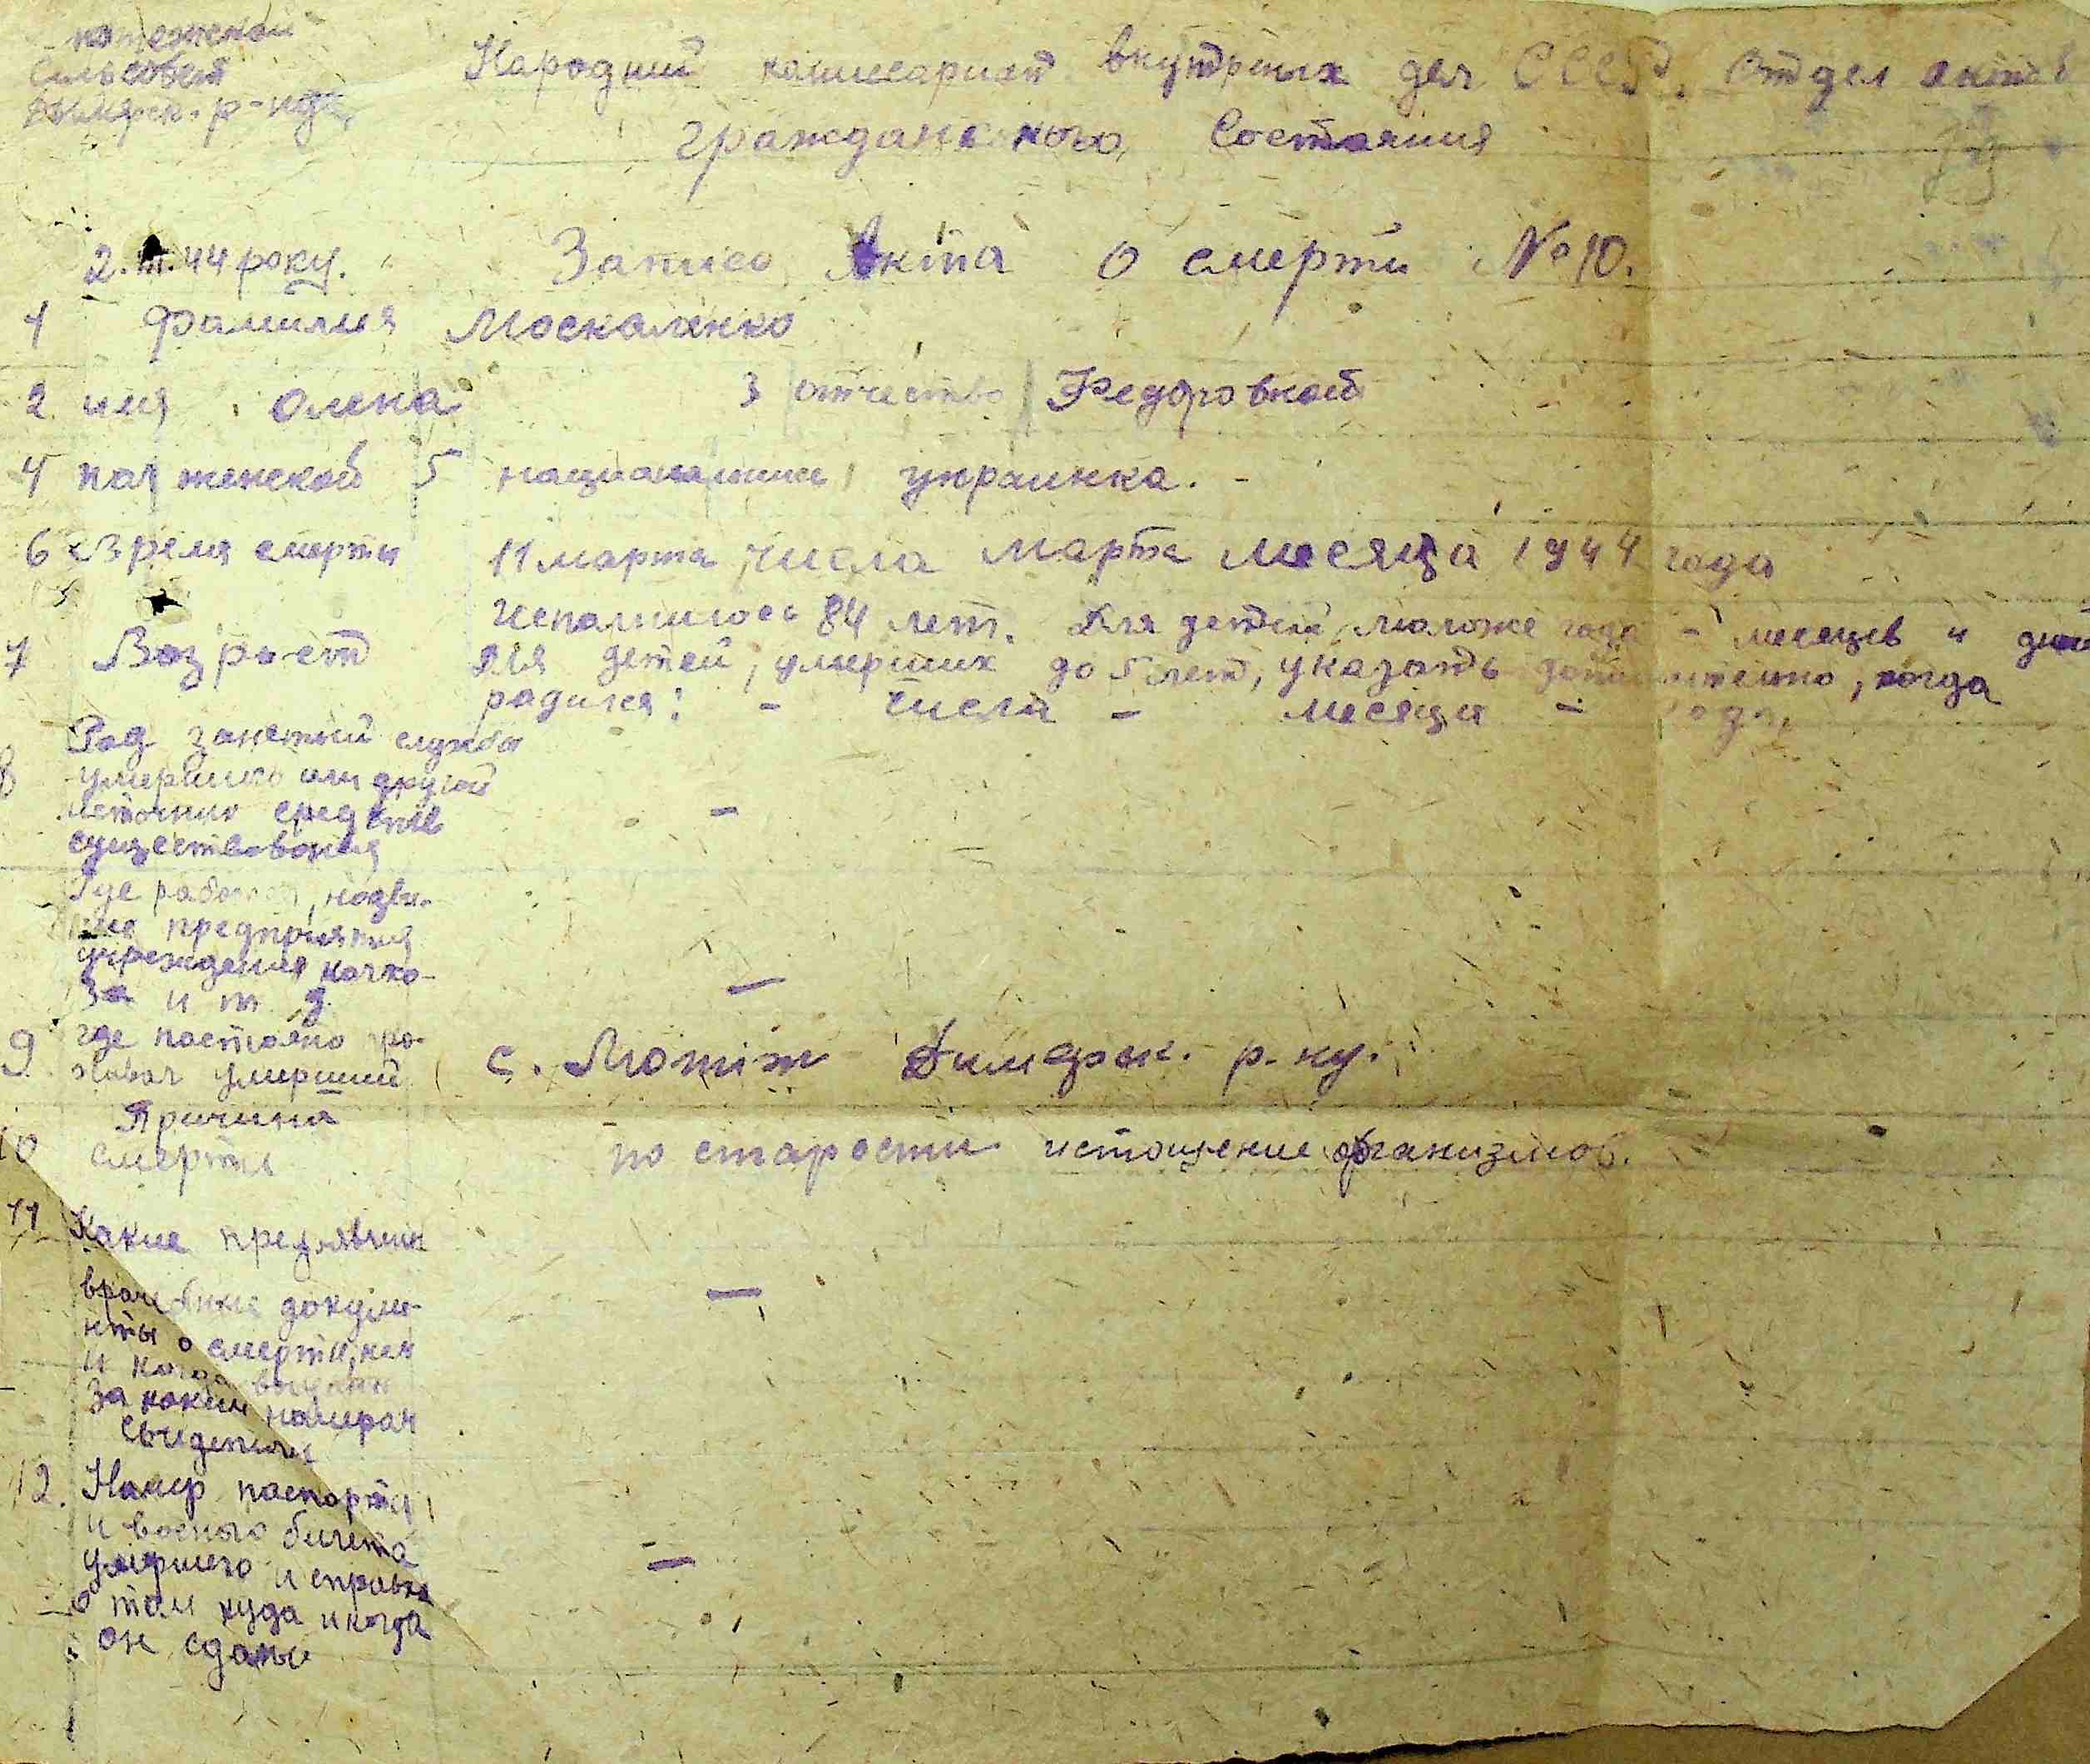 сильсовет
Народний комисариат внутрених дел СССР. Отдел актов
гражданского Состояния
2.III.44 року. Запись Акта О смерти № 10.
1 Фамилия Москаленко
2 имя Олена 3 отчество Федоровной
4 пол женской 5 национальность украинка. -
6 Время смерти 11 марта числа Марта Месяца 1944 года
Исполнилось 84 лет. Для детей, моложе года - месяцев и дней
7 Возраст Для детей, умерших до 5 лет, указать дополнительно, когда
родился: - числа - Месяца - года,
Род занятий служба
8 умершого или другой
источник средств -
существования
Где работал, назва-
ние предприятия
учреждения колхо-
за и т д. —
9 где постояно про-
живал умерший с. Лютіж Димерськ. р-ну.
Причина
10 смерти по старости истощение организмов.
11 Какие предявлены
врачебные докуме- —
нты о смерти, кем
и когда выданы
За каким номером
Свидетели
12. Номер паспорта
и военого билета
умершего и справка —
о том куда и когда
он сданы